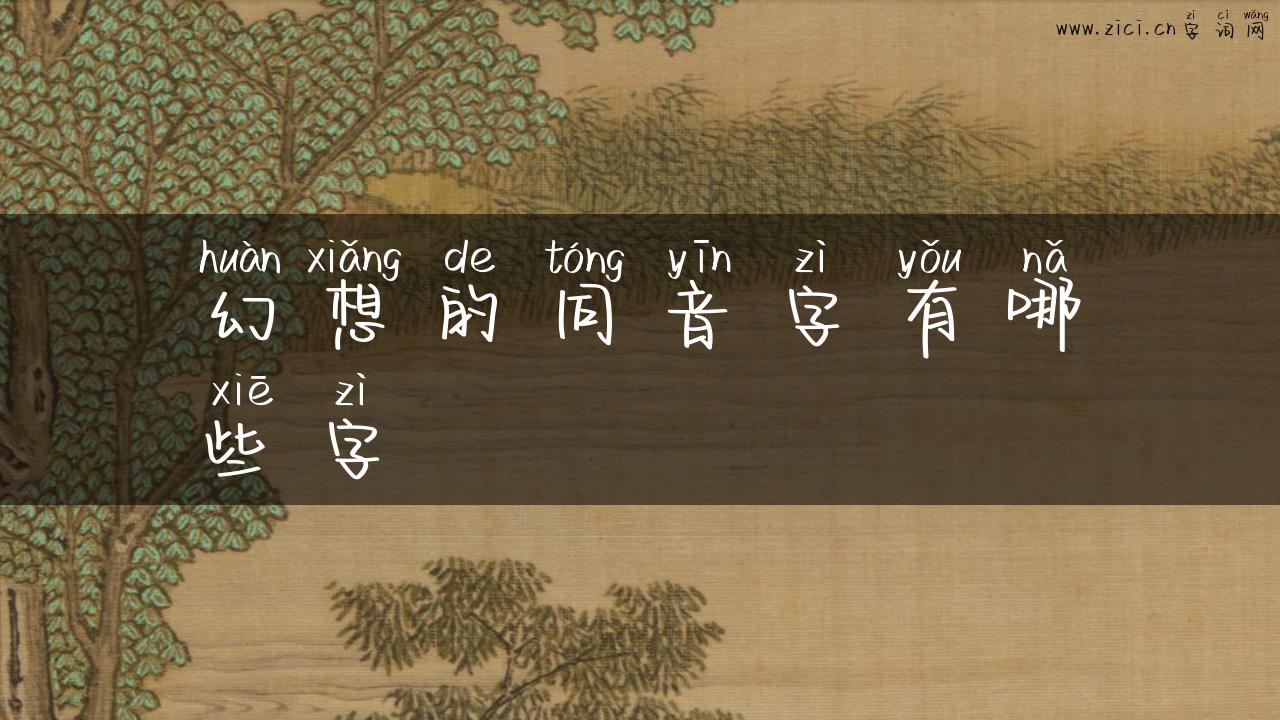 zì cí wǎng
www.zici.cn字词网
huàn xiǎng de tóng yīn zì yǒu nǎ
幻想的同音字有哪
xiē zì
些字